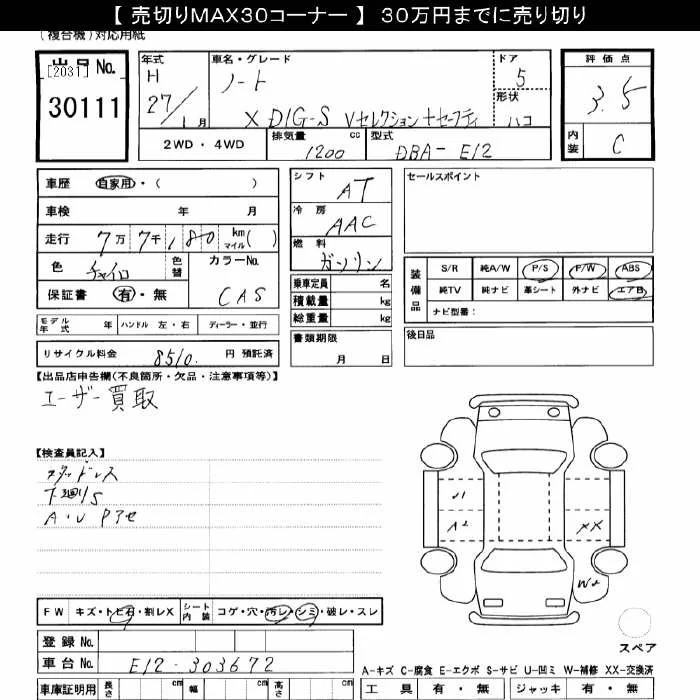 【 売切りMAX30コーナー 】 30万円までに売り切り
(複合機)対応用紙
出品No.
[2031]
30111
年式
H
27/1月
車名・グレード
ノート
X DIG-S Vセレクション+セーフティ
ドア
5
形状
ハコ
評価点
3.5
内装
C
2WD・4WD
排気量
1200
cc
型式
DBA-E12
車歴 自家用・( )
車検 年 月
走行 7万 7千 180 km マイル( )
色 チャイロ 色替
カラーNo.
CAS
保証書 有・無
シフト
AT
冷房
AAC
燃料
ガソリン
乗車定員 名
積載量 kg
総重量 kg
書類期限
月 日
セールスポイント
装備品
S/R 純A/W P/S P/W ABS
純TV 純ナビ 革シート 外ナビ エアB
ナビ型番:
後日品
モデル年式 年 ハンドル 左・右 ディーラー・並行
リサイクル料金 8510. 円 預託済
【出品店申告欄(不良箇所・欠品・注意事項等)】
ユーザー買取
【検査員記入】
スタッドレス
下廻りS
A・U Pアセ
U1
A2
XX
W2
FW キズ・トビ石・割レX シート内装 コゲ・穴・汚レ・シミ・破レ・スレ
登録No.
車台No. E12-303672
車庫証明用 長さ cm 幅 cm 高さ cm
スペア
A-キズ C-腐食 E-エクボ S-サビ U-凹ミ W-補修 XX-交換済
工具 有・無 ジャッキ 有・無